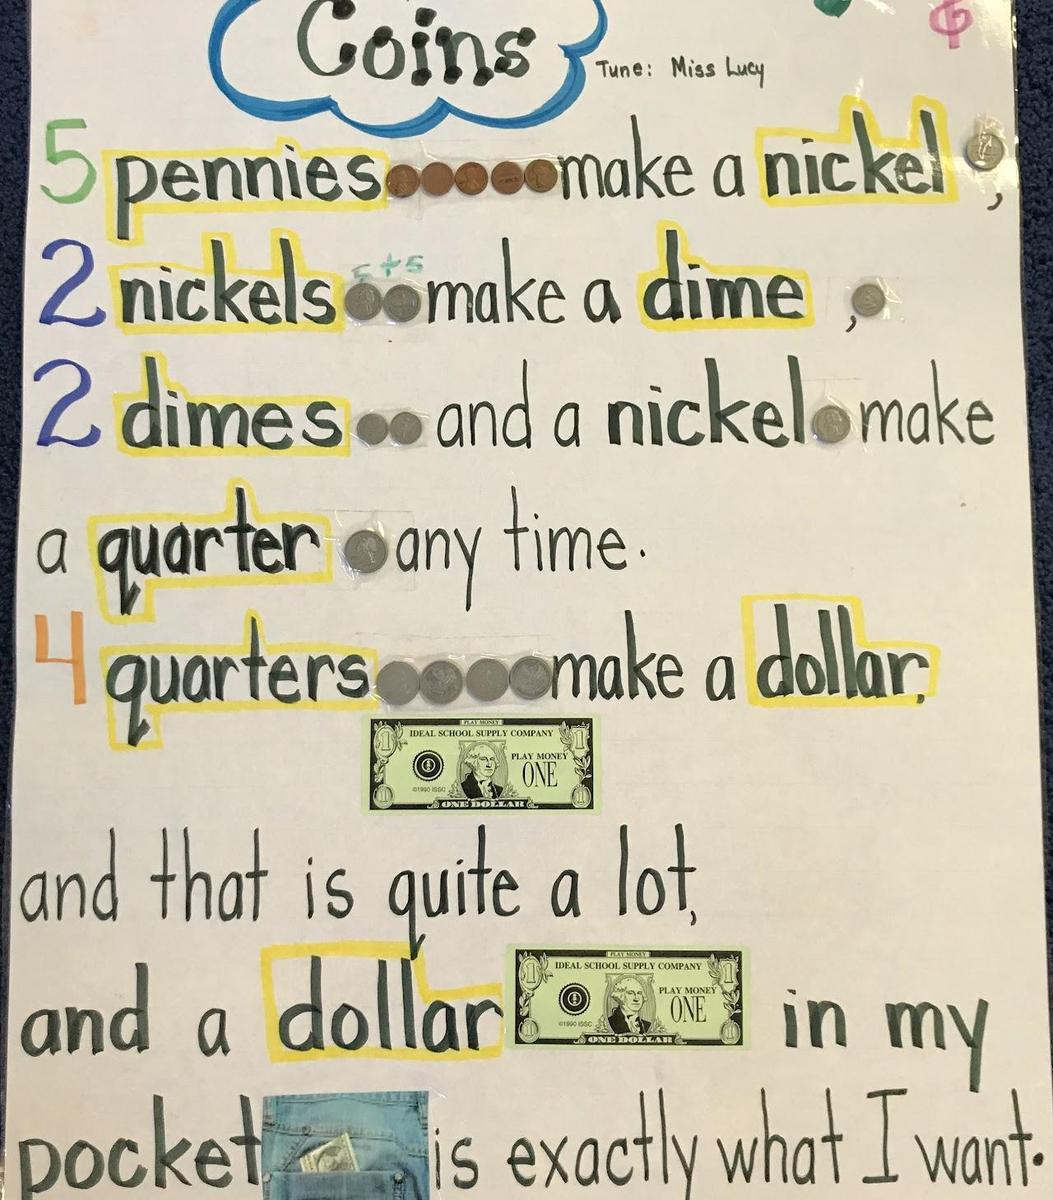 Coins
Tune: Miss Lucy
5 pennies make a nickel,
5+5
2 nickels make a dime,
2 dimes and a nickel make
a quarter any time.
4 quarters make a dollar,
PLAY MONEY
IDEAL SCHOOL SUPPLY COMPANY
1 1
PLAY MONEY
ONE
©1990 ISSC
1 ONE DOLLAR 1
and that is quite a lot,
PLAY MONEY
IDEAL SCHOOL SUPPLY COMPANY
1 1
PLAY MONEY
ONE
©1990 ISSC
1 ONE DOLLAR 1
and a dollar in my
pocket is exactly what I want.